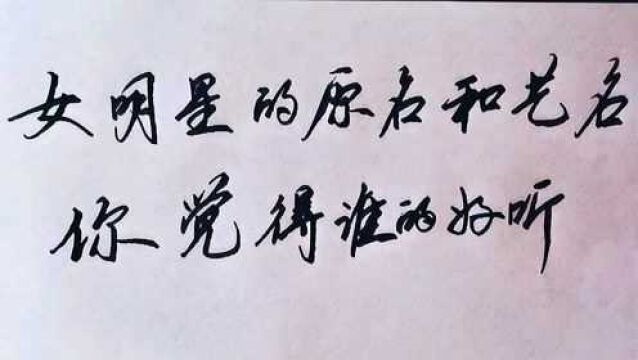 女明星的原名和艺名
你觉得谁的好听